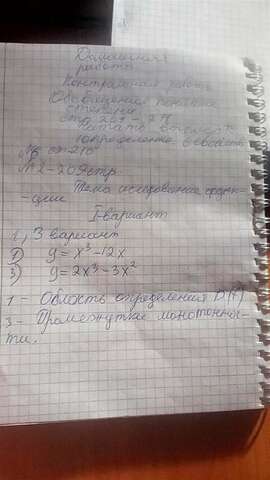 Домашняя
работа
Контрольная работа
Обобщение понятие
степени
стр 209 -
определение свойств
№2-209стр
Тема исследование функ-
-ции
I-вариант
1, 3 вариант
1) y = x³-12x
3) y = 2x³-3x²
1 - Область определения D(f)
3 - Промежутки монотоннос-
ти.